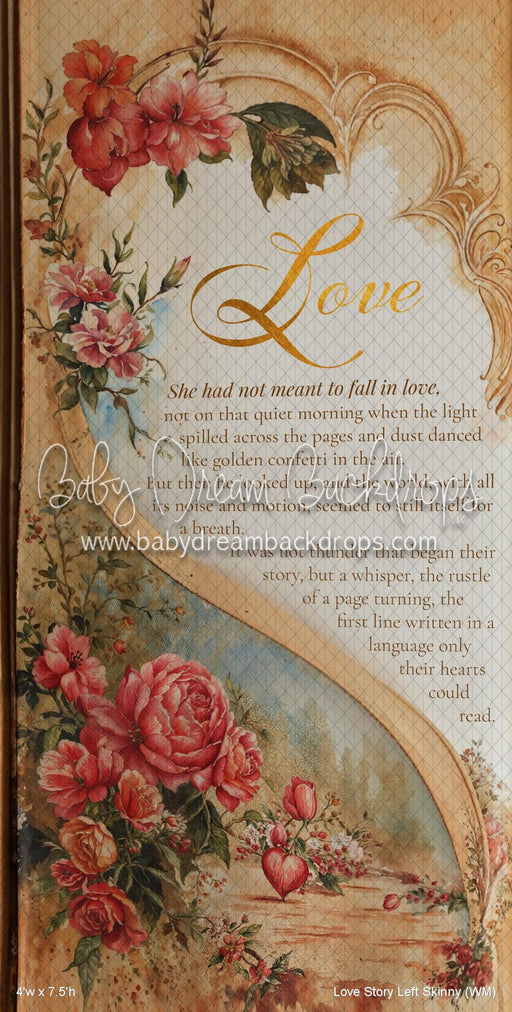 Love
She had not meant to fall in love,
not on that quiet morning when the light
spilled across the pages and dust danced
like golden confetti in the air.
But then he looked up, and the world, with all
its noise and motion, seemed to still itself for
a breath.
Baby Dream Backdrops
LLC
www.babydreambackdrops.com
It was not thunder that began their
story, but a whisper, the rustle
of a page turning, the
first line written in a
language only
their hearts
could
read.
4'w x 7.5'h
Love Story Left Skinny (WM)